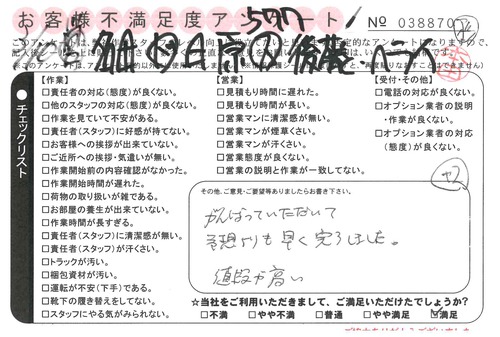 お客様不満足度アンケート
№ 038870
チェックリスト
【作業】
□責任者の対応(態度)が良くない。
□他のスタッフの対応(態度)が良くない。
□作業を見ていて不安がある。
□責任者(スタッフ)に好感が持てない。
□お客様への挨拶が出来ていない。
□ご近所への挨拶・気遣いが無い。
□作業開始前の内容確認がなかった。
□作業開始時間が遅れた。
□荷物の取り扱いが雑である。
□お部屋の養生が出来ていない。
□作業時間が長すぎる。
□責任者(スタッフ)に清潔感が無い。
□責任者(スタッフ)が汗くさい。
□トラックが汚い。
□梱包資材が汚い。
□運転が不安(下手)である。
□靴下の履き替えをしてない。
□スタッフにやる気がみられない。
【営業】
□見積もり時間に遅れた。
□見積もり時間が長い。
□営業マンに清潔感が無い。
□営業マンが煙草くさい。
□営業マンが汗くさい。
□営業態度が良くない。
□営業の説明と作業が一致してない。
【受付・その他】
□電話の対応が良くない。
□オプション業者の説明
・作業が良くない。
□オプション業者の対応
(態度)が良くない。
その他、ご意見・ご要望等ありましたらお書き下さい。
がんばっていただいて
予想よりも早く完了しました。
値段が高い
☆当社をご利用いただきまして、ご満足いただけたでしょうか?
□不満 □やや不満 □普通 □やや満足 ☑満足